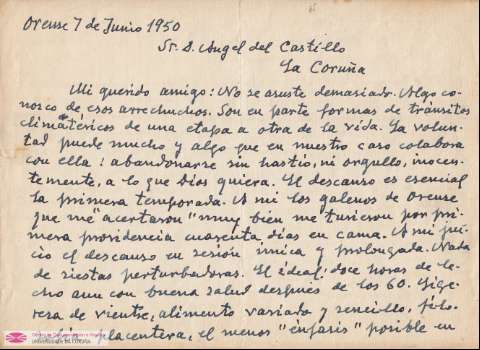 Orense 7 de Junio 1950
Sr. D. Angel del Castillo
La Coruña
Mi querido amigo: No se asuste demasiado. Algo co-
nozco de esos arrechuchos. Son en parte formas de tránsitos
climatéricos de una etapa a otra de la vida. La volun-
tad puede mucho y algo que en nuestro caso colabora
con ella: abandonarse sin hastío, ni orgullo, inocen-
temente, a lo que Dios quiera. El descanso es esencial
la primera temporada. A mi los galenos de Orense
que me "acertaron" muy bien me tuvieron por pri-
mera providencia cuarenta días en cama. A mi jui-
cio el descanso en sesión única y prolongada. Nada
de siestas perturbadoras. El ideal, doce horas de le-
cho aun con buena salud después de los 60. Lige-
reza de vientre, alimento variado y sencillo, filo-
placentera, el menos "énfasis" posible en